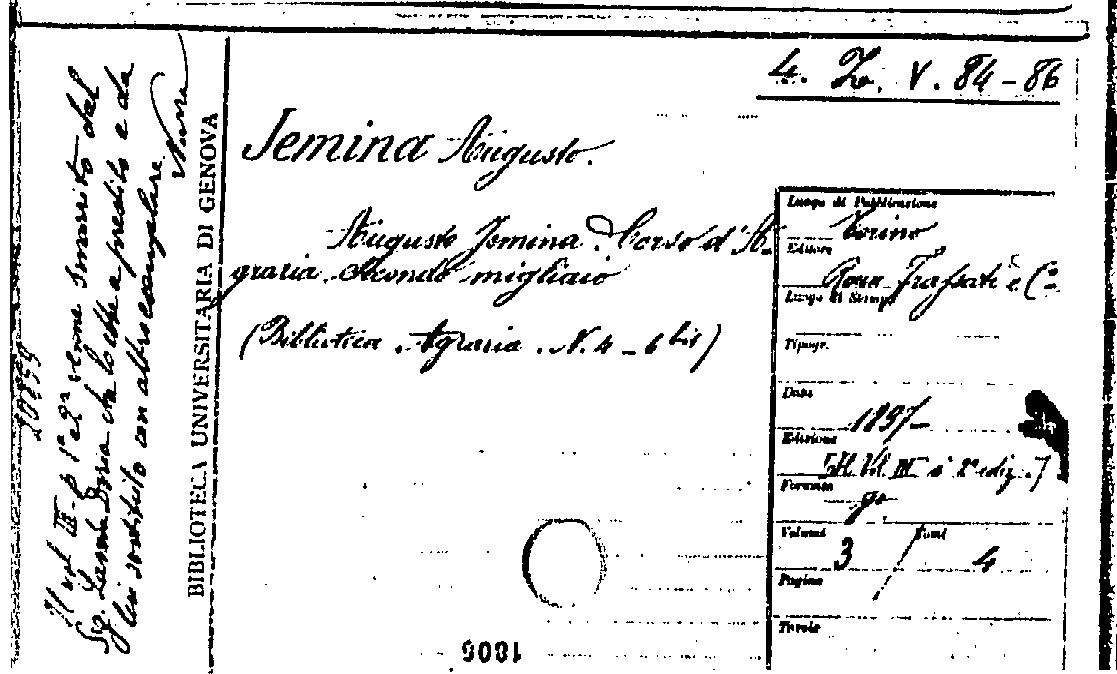 4. Z. V. 84-86
Jemina Augusto.
Augusto Jemina. Corso d'A-
graria. Secondo migliaio
(Biblioteca Agraria. N. 4-6 bis)
Luogo di Pubblicazione
Torino
Editore
Roux Frassati e Co.
Luogo di Stampa
Tipogr.
Data
1897-
Edizione
[Il Vol. III è 2a ediz.]
Formato
8o
Volumi Tomi
3 / 4
Pagine
Tavole
BIBLIOTECA UNIVERSITARIA DI GENOVA
Il vol III - p 1a e 2a venne smarrito dal
Sg. Doria che lo ebbe a prestito e da
lui sostituito con altro esemplare
1806